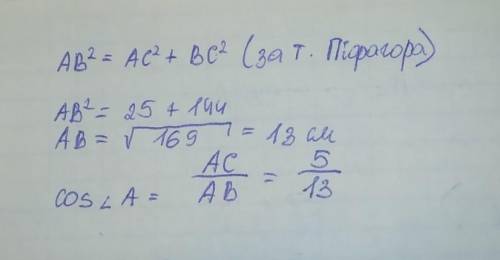 AB² = AC² + BC² (за т. Піфагора)
AB² = 25 + 144
AB = √169 = 13 см
cos∠A = AC/AB = 5/13